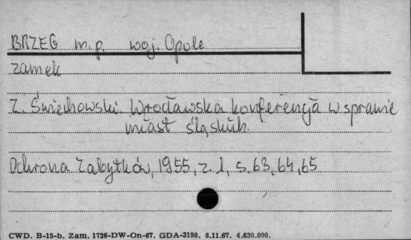 BRZEG m.p. woj. Opole
zamek
Z. Świechowski. Wrocławska konferencja w sprawie
miast śląskich.
Ochrona Zabytków, 1955, z. 1, s. 63, 64, 65
CWD. B-15-b. Zam. 1726-DW-On-67. GDA-3198. 8.11.67. 4.630.000.